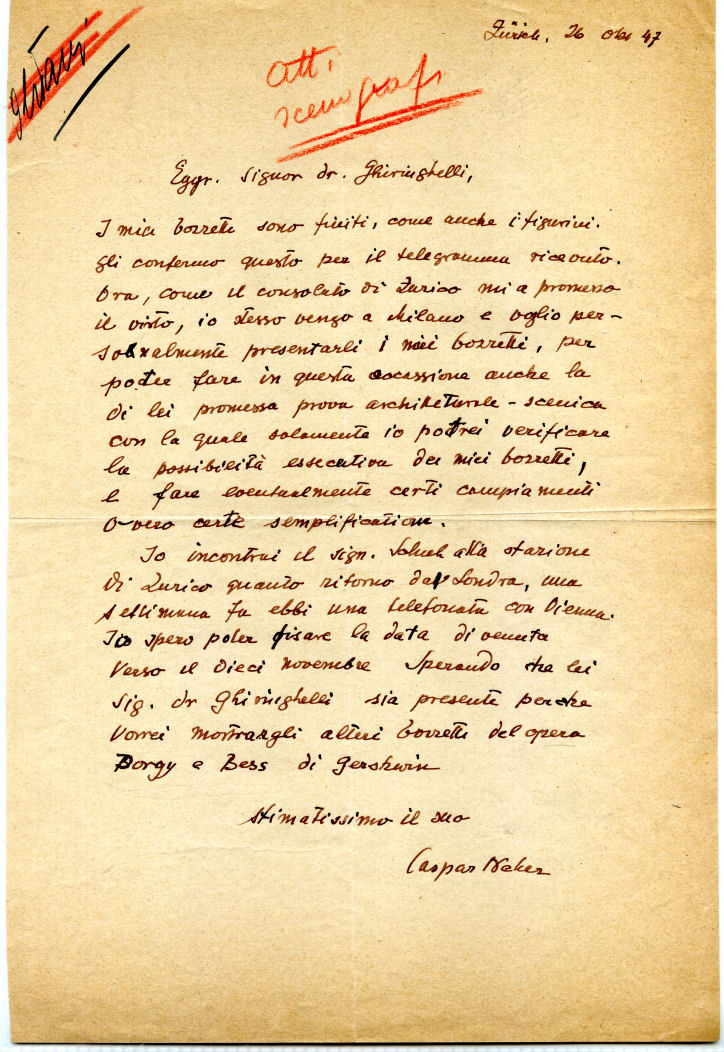 Zürich, 26 Okt 47
att.
scenografi
Eggr. Signor dr. Ghiringhelli,
I miei bozzetti sono finiti, come anche i figurini.
gli confermo questo per il telegramma ricevuto.
Ora, come il consolato di Zurico mi a promesso
il visto, io stesso vengo a Milano e voglio per-
sonalmente presentarli i miei bozzetti, per
poter fare in questa occassione anche la
di lei promessa prova architeturale - scenica
con la quale solamente io potrei verificare
la possibilità essecutiva dei miei bozzetti,
e fare eventualmente certi campiamenti
ovvero certe semplificatione.
Io incontrai il sign. Schuh alla stazione
di Zurico quanto ritorno da Londra, una
settimana fa ebbi una telefonata con Vienna.
Io spero poter fisare la data di venuta
verso il dieci novembre Sperando che lei
Sig. dr Ghiringhelli sia presente perche
vorrei mostrargli altri bozzetti del opera
Porgy e Bess di Gershwin
Stimatissimo il suo
Caspar Neher